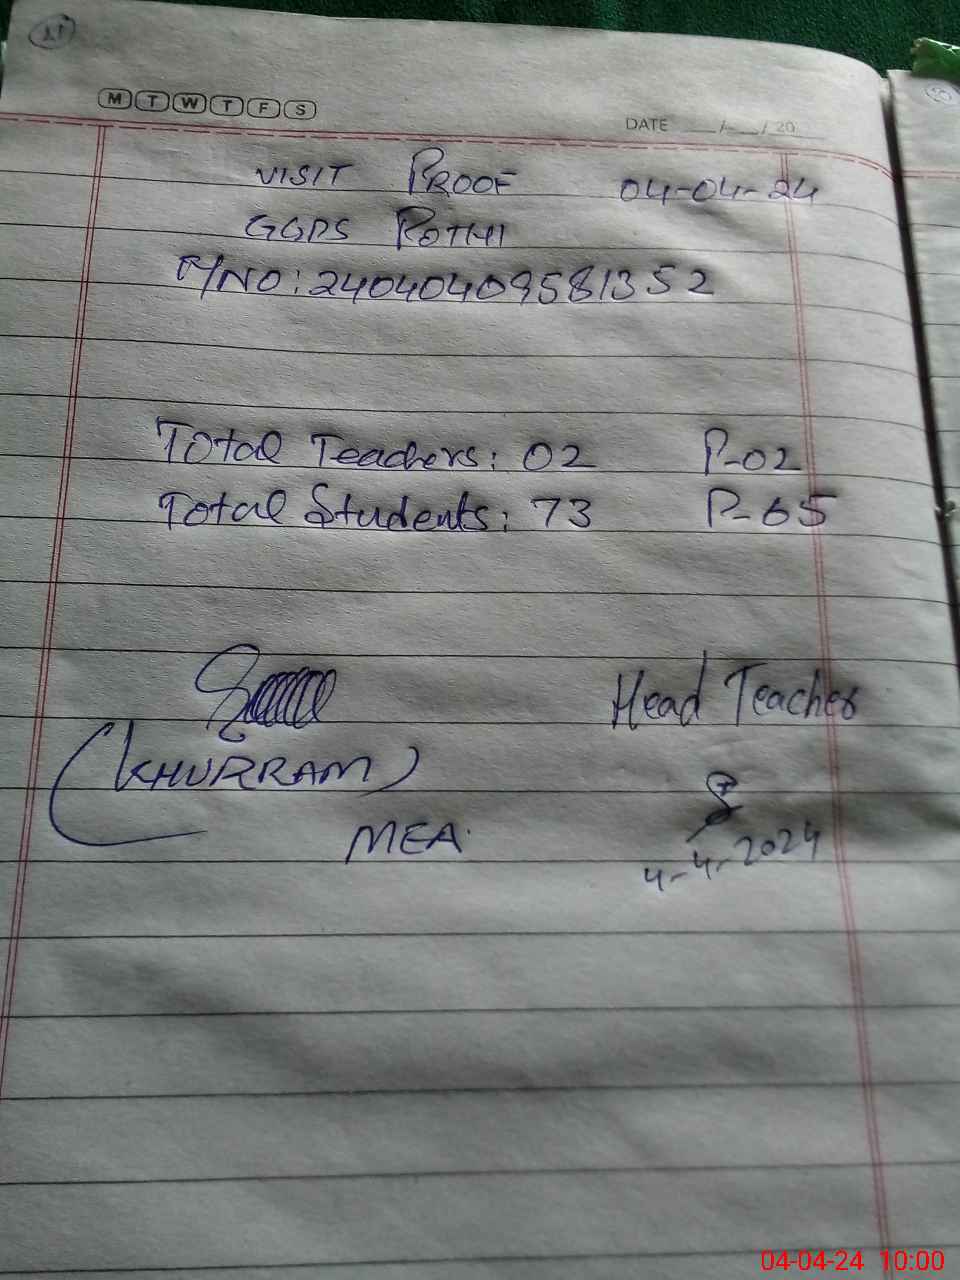 M T W T F S
DATE __/__/20__
VISIT PROOF 04-04-24
GGPS ROTHI
P/NO: 24040409581352
Total Teachers: 02 P-02
Total Students: 73 P-65
Head Teacher
(KHURRAM)
MEA
4-4-2024
04-04-24 10:00